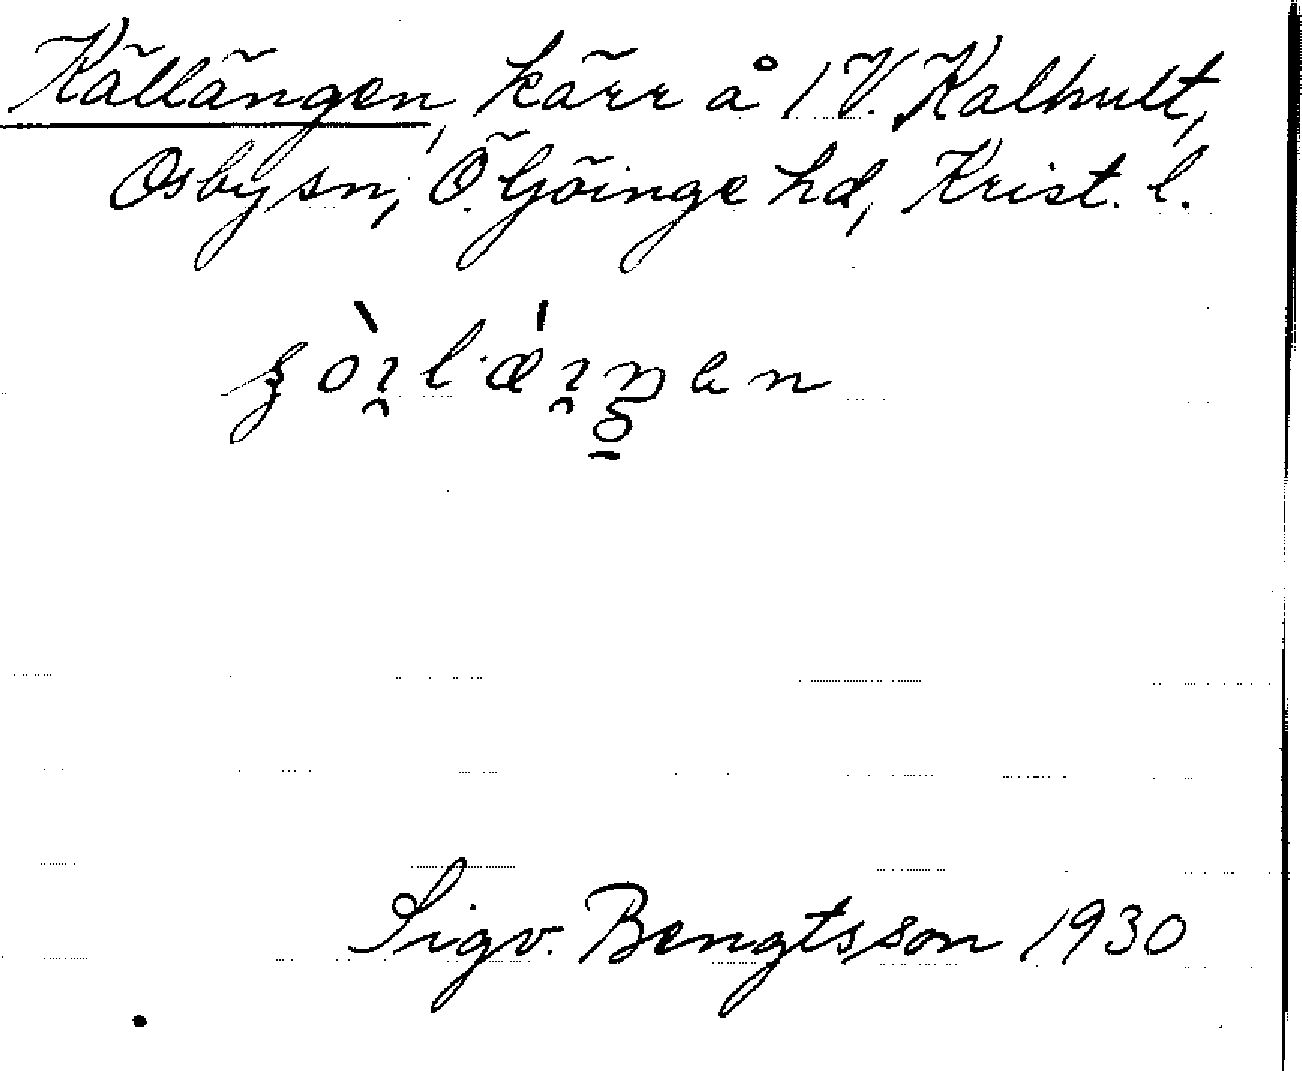 Källängen, kärr å 1 V. Kalhult,
Osby sn, Ö. Göinge hd, Krist. l.
Sigv. Bengtsson 1930